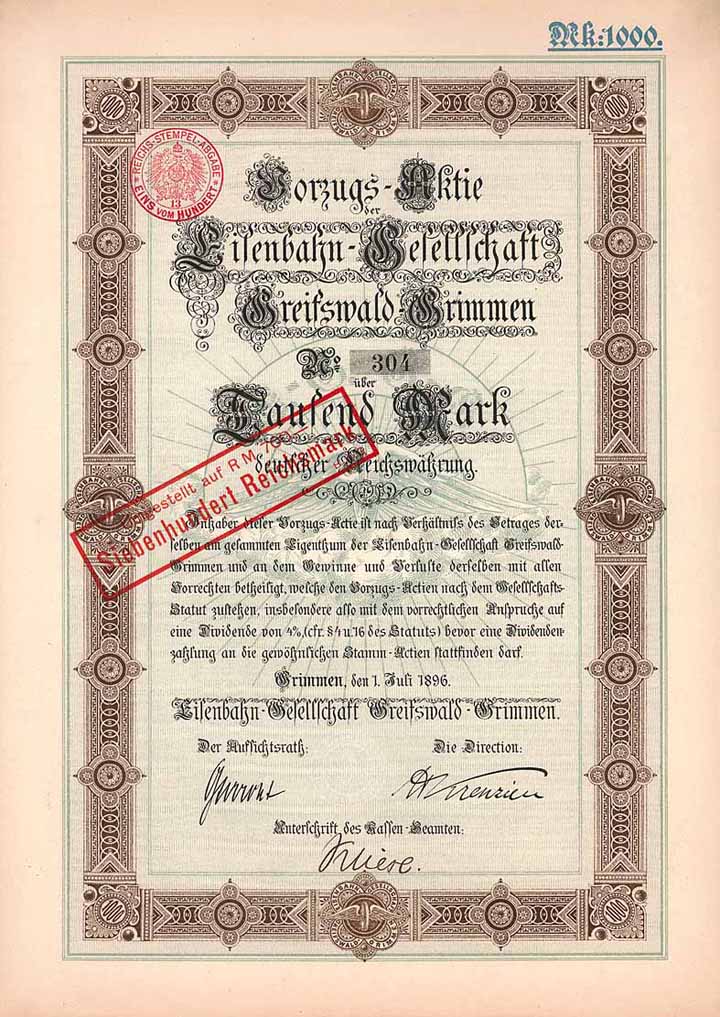 Mk:1000.
REICHS-STEMPEL-ABGABE
13
EINS VOM HUNDERT
Vorzugs-Aktie
der
Eisenbahn-Gesellschaft
Greifswald-Grimmen
No 304
über
Tausend Mark
deutscher Reichswährung.
gestellt auf RM 700.-
Siebenhundert Reichsmark
Inhaber dieser Vorzugs-Actie ist nach Verhältniss des Betrages der-
selben am gesammten Eigenthum der Eisenbahn-Gesellschaft Greifswald-
Grimmen und an dem Gewinne und Verluste derselben mit allen
Vorrechten betheiligt, welche den Vorzugs-Actien nach dem Gesellschafts-
Statut zustehen, insbesondere also mit dem vorrechtlichen Anspruche auf
eine Dividende von 4%, (cfr. § 4 u. 16 des Statuts) bevor eine Dividenden-
zahlung an die gewöhnlichen Stamm-Actien stattfinden darf.
Grimmen, den 1. Juli 1896.
Eisenbahn-Gesellschaft Greifswald-Grimmen.
Der Aufsichtsrath:
Die Direction:
Unterschrift des Kassen-Beamten: